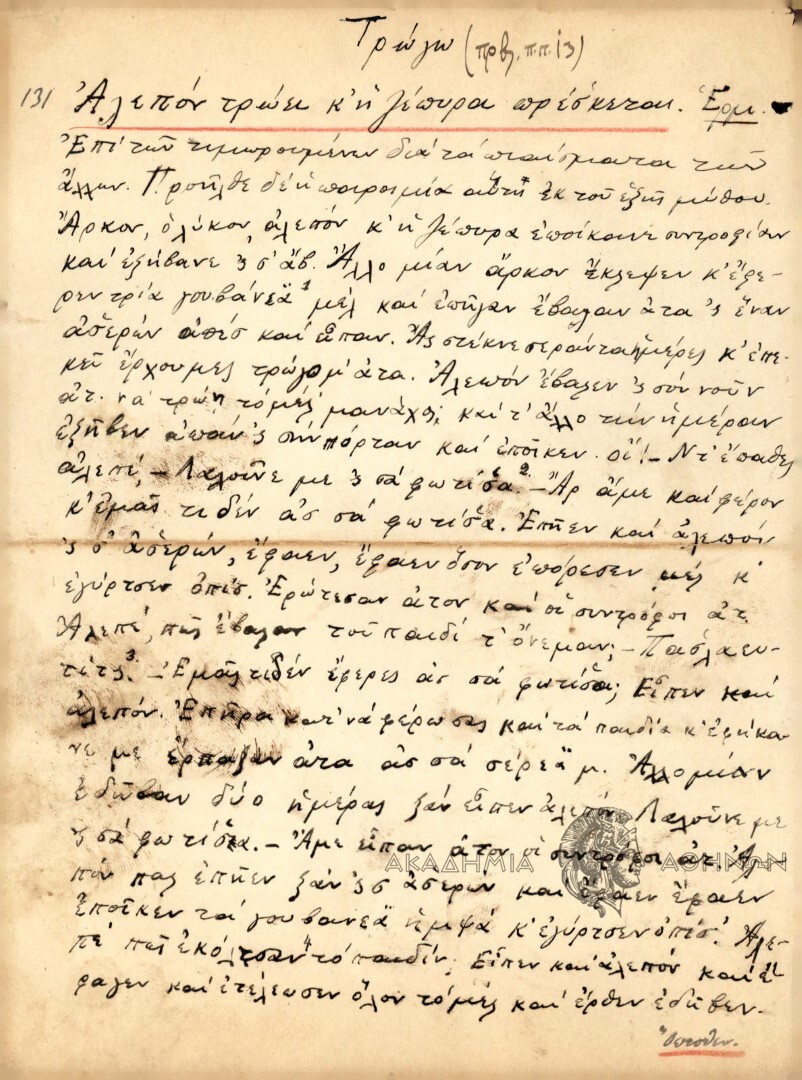 Τρώγω (πρβ. π.π. 13)
131 Ἀλεπόν τρώει κ' ἡ ζέπυρα πρέσκεται. Ἐρμ.
Ἐπί τῶν τιμωρουμένων διά τά πταίσματα τῶν
ἄλλων. Προῆλθε δέ ἡ παροιμία αὕτη ἐκ τοῦ ἑξῆς μύθου.
Ἄρκον, ὁ λύκον, ἀλεπόν κ' ἡ ζέπυρα ἐποίκανε συντροφίαν
καί ἐξέβανε 'ς σ' ἄβ. Ἄλλο μίαν ἄρκον ἔκλεψεν κ' ἔφε-
ρεν τρία γουβάνεᾰ 1 μέλ καί ἐπῆγαν ἔβαλαν ἀτα 'ς ἕναν
ἀσ̌ερών ἀπέσ καί εἶπαν. Ἄς στέκνε σεράντα ἡμέρες κ' ἐπε-
κεῖ ἔρχουμες τρώγομ' ἀτα. Ἀλεπόν ἔβαλεν 'ς σόν νοῦν
ἀτ. νά τρώῃ τό μέλ' μανάχος καί τ' ἄλλο τήν ἡμέραν
ἐξέβεν ἀπάν 'ς σήν πόρταν καί ἐποίκεν. οἵ! – Ντ' ἔπαθες
ἀλεπέ, – Λαλοῦνε με 'ς σά φωτίσ̌α. 2 – Ἄρ ἄμε καί φέρον
κ' ἐμᾶς τιδέν ἀσ σά φωτίσ̌α. Ἐπῆεν καί ἀλεπόν
'ς σ' ἀσ̌ερών, ἔφαεν, ἔφαεν ὅσον ἐπόρεσεν μέλ κ'
ἐγύρτσεν ὀπίσ. Ἐρώτεσαν ἀτον καί οἱ συντρόφοι ἀτ.
Ἀλεπέ, πῶς ἔβαλαν τοῦ παιδί τ' ὄνεμαν; –
τίτσ 3. – Ἐμᾶς τιδέν ἔφερες ἀσ σά φωτίσ̌α; Εἶπεν καί
ἀλεπόν. Ἐπῆρα κατ' νά φέρω σας καί τά παιδία κ' ἐφῆκα-
νε με ἔρπαξαν ἀτα ἀσ σά σ̌έρεᾰ μ. Ἄλλο μίαν
ἐδέβαν δύο ἡμέρας ξάν εἶπεν ἀλεπόν. Λαλοῦνε με
'ς σά φωτίσ̌α. – Ἄμε εἶπαν ἀτον οἱ συντρόφοι ἀτ. Ἀλε-
πόν πας ἐπῆεν ξάν 'ς σ' ἀσ̌ερών καί ἔφαεν ἔφαεν
ἐποῖκεν τά γουβάνεᾰ ἡμψά κ' ἐγύρτσεν ὀπίσ. Ἀλε-
πέ πῶς ἐκόλτσαν 4 τό παιδίν; Εἶπεν καί ἀλεπόν καί ἔ-
φαγεν καί ἐτελέωσεν ὅλον τό μέλ καί ἔρθεν ἐδέβεν.
Ὄπισθεν.
ΑΚΑΔΗΜΙΑ ΑΘΗΝΩΝ